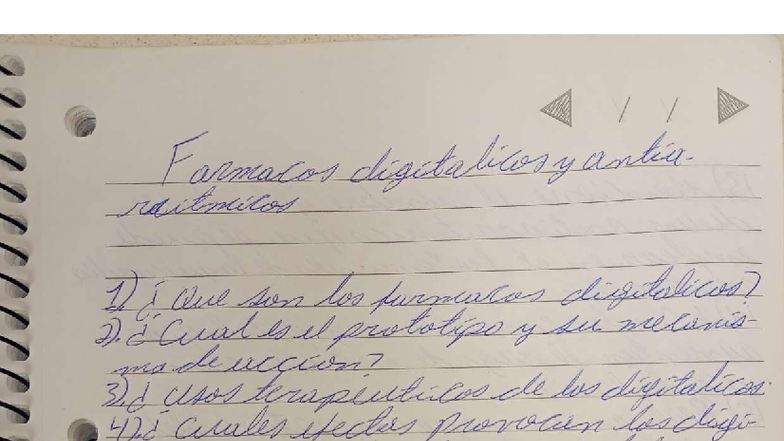 Farmacos digitalicos y antia-
raitmicos
1) ¿Que son los farmacos digitalicos?
2). ¿Cual es el prototipo y su mecanis-
mo de accion?
3). ¿Usos terapéuticos de los digitalicos.
4). ¿Cuales efectos provocan los digi-